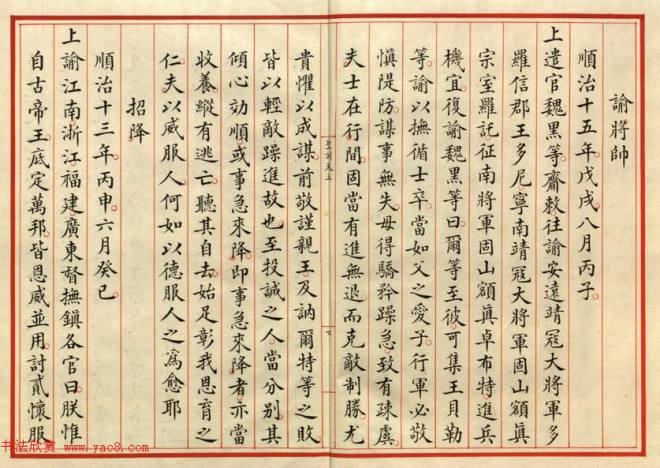 諭將帥
順治十五年戊戌八月丙子
上遣官魏黑等齎敕往諭安遠靖寇大將軍多
羅信郡王多尼寧南靖寇大將軍固山額眞
宗室羅託征南將軍固山額眞卓布特進兵
機宜復諭魏黑等曰爾等至彼可集王貝勒
等諭以撫循士卒當如父之愛子行軍必敬
愼隄防謀事無失毋得驕矜躁急致有疎虞
夫士在行間固當有進無退而克敵制勝尤
聖訓卷三
七
貴懼以成謀前敬謹親王及訥爾特等之敗
皆以輕敵躁進故也至投誠之人當分别其
傾心効順或事急來降即事急來降者亦當
收養縱有逃亡聽其自去始足彰我恩育之
仁夫以威服人何如以德服人之爲愈耶
招降
順治十三年丙申六月癸巳
上諭江南浙江福建廣東督撫鎮各官曰朕惟
自古帝王底定萬邦皆恩威並用討貳懷服
书法欣赏 www.yac8.com